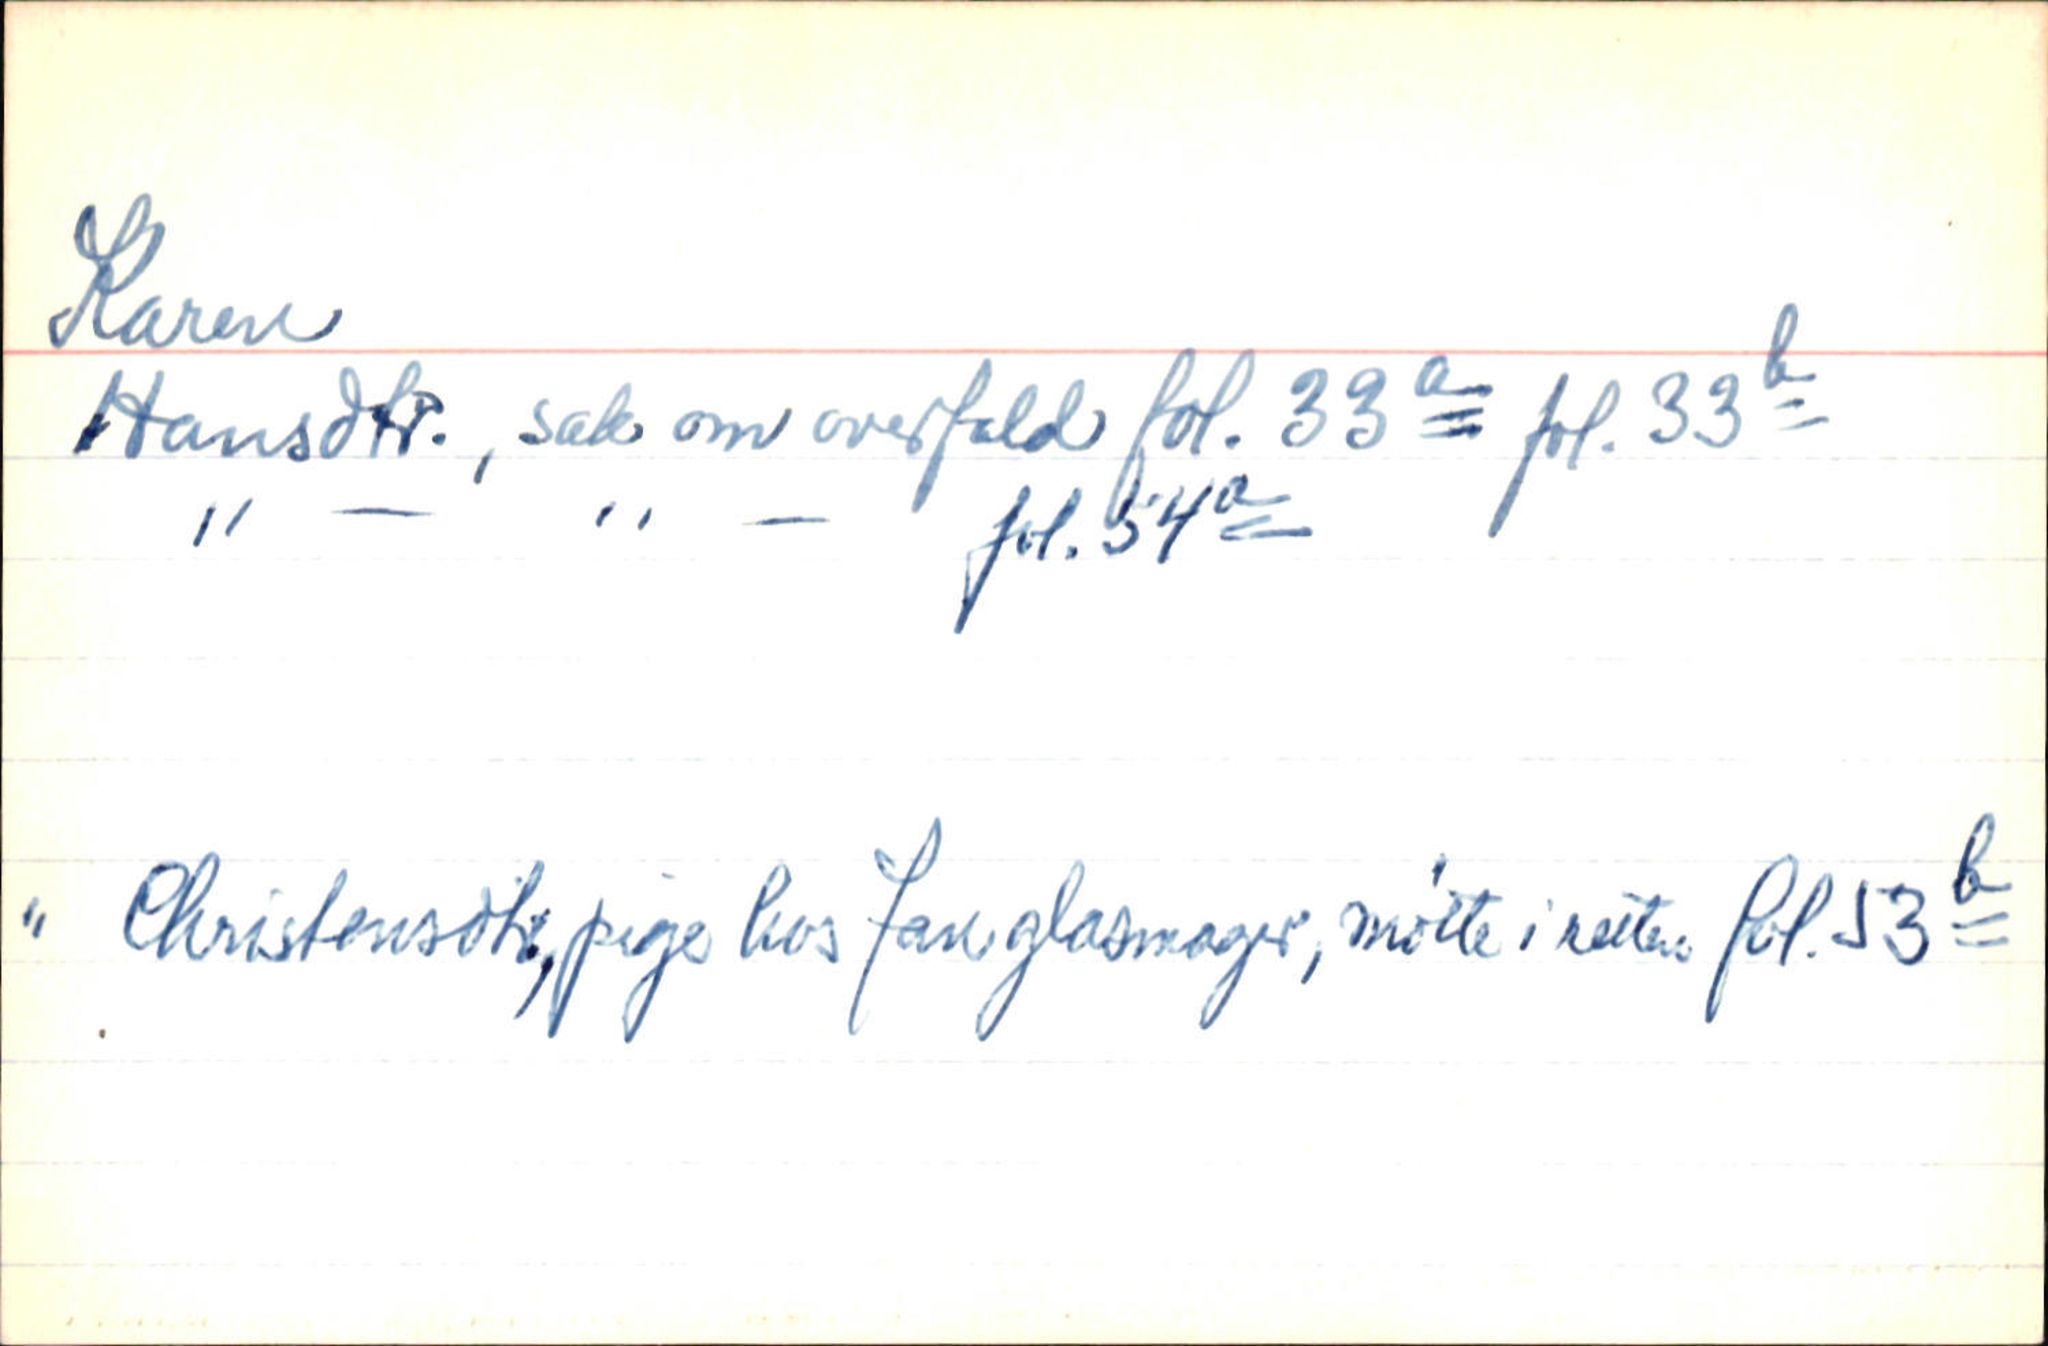 Karen
Hansdtr., sak om overfald fol. 33a fol. 33b
" — " — fol. 54a
" Christensdtr, pige hos Jan glasmager, møtte i retten fol. 53b